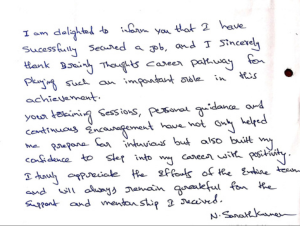 I am delighted to inform you that I have
Sucessfully Secured a job, and I Sincerely
thank Brainly Thoughts Career pathway for
Playing such an important role in this
achievement.
your training Sessions, personal guidance and
continuous Encouragement have not only helped
me prepare for interviews but also built my
confidence to step into my career with positivity.
I truly appreciate the Efforts of the Entire team
and will always remain grateful for the
Support and mentorship I received.
N. Sarath Kumar